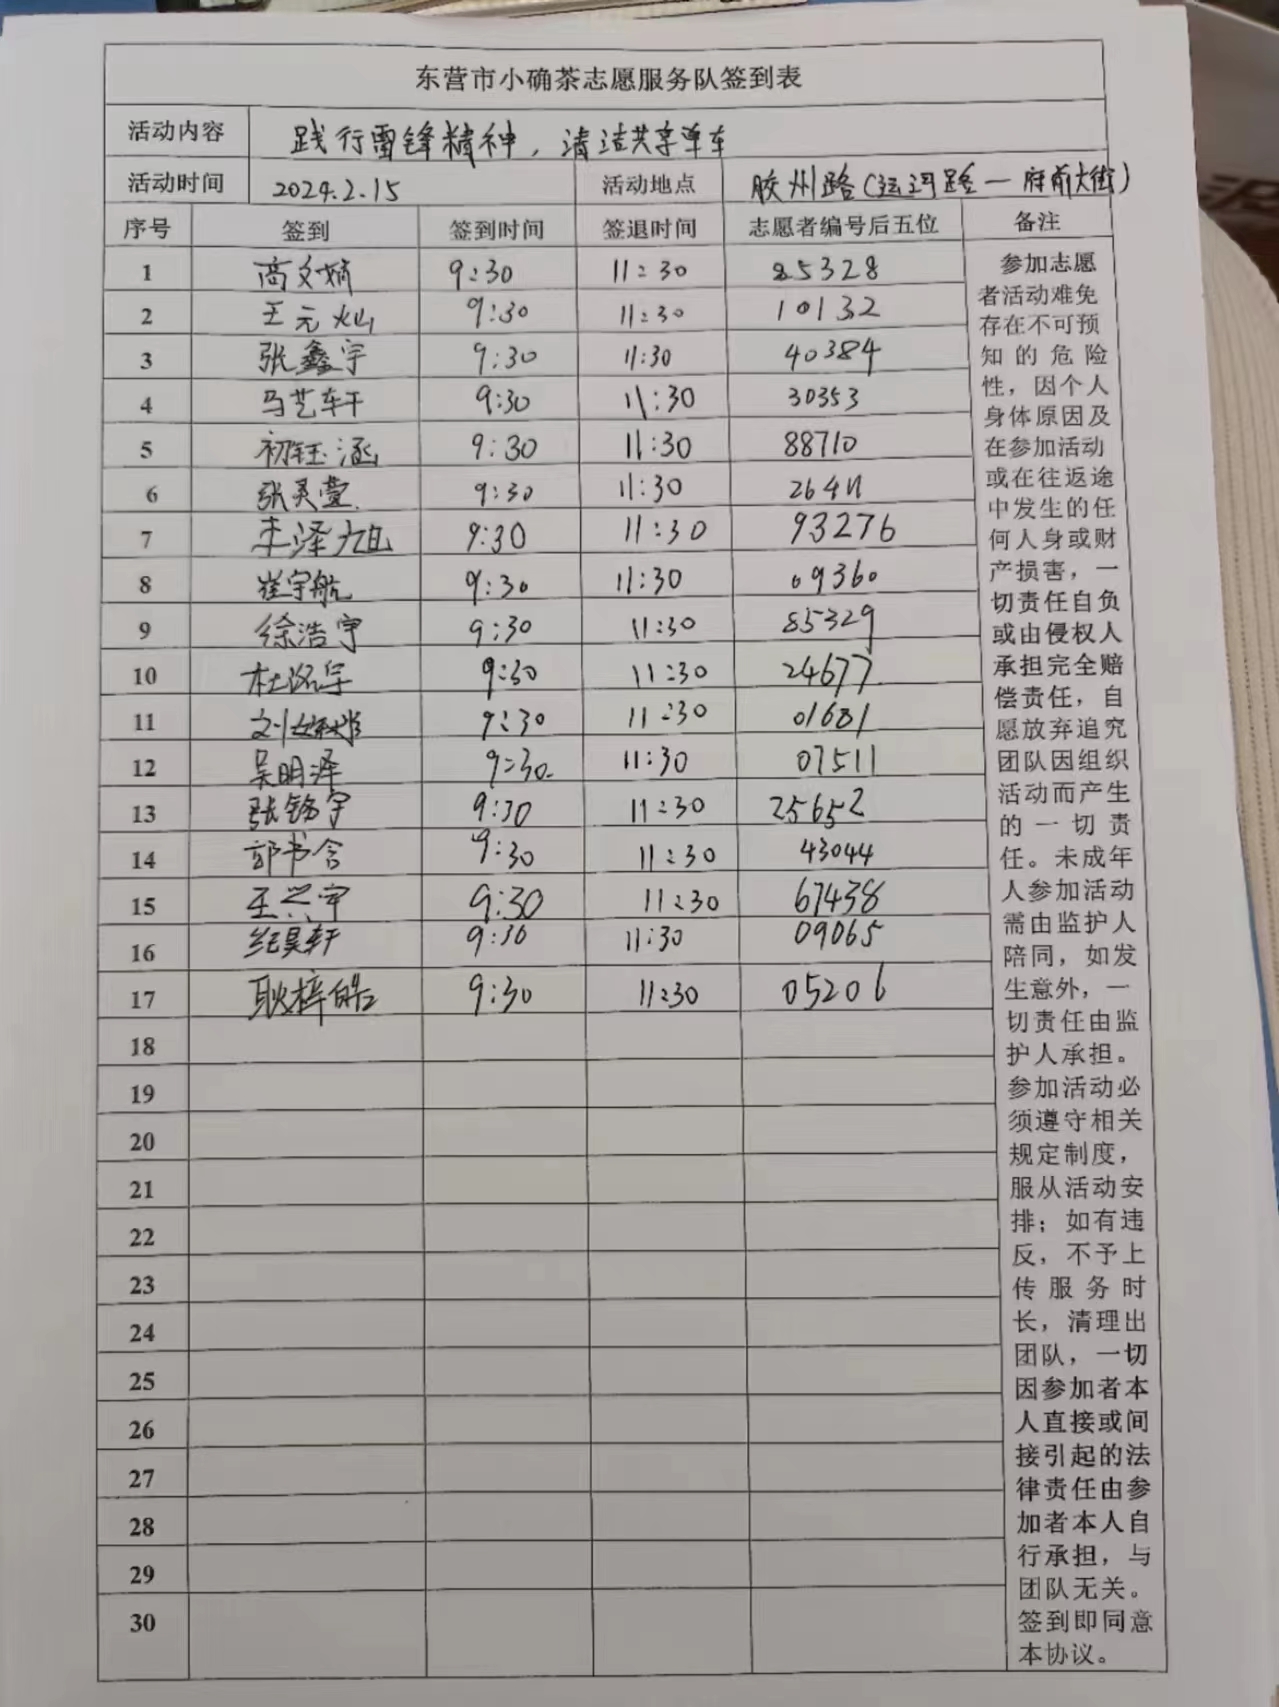 东营市小确茶志愿服务队签到表
活动内容 践行雷锋精神，清洁共享单车
活动时间 2024.2.15 活动地点 胶州路（运河路—府前大街）
序号 签到 签到时间 签退时间 志愿者编号后五位 备注
1 高文婧 9:30 11:30 85328
2 王元灿 9:30 11:30 10132
3 张鑫宇 9:30 11:30 40384
4 马艺轩 9:30 11:30 30353
5 初钰涵 9:30 11:30 88710
6 张灵萱 9:30 11:30
7 李泽旭 9:30 11:30 93276
8 崔宇航 9:30 11:30 09360
9 徐浩宇 9:30 11:30 85329
10 杜洺宇 9:30 11:30 24677
11 9:30 11:30 01681
12 吴明泽 9:30 11:30 07511
13 张铭宇 9:30 11:30 25652
14 郭书含 9:30 11:30 43044
15 王兴宇 9:30 11:30 67438
16 纪昊轩 9:30 11:30 09065
17 耿梓皓 9:30 11:30 05206
18
19
20
21
22
23
24
25
26
27
28
29
30
参加志愿
者活动难免
存在不可预
知的危险
性，因个人
身体原因及
在参加活动
或在往返途
中发生的任
何人身或财
产损害，一
切责任自负
或由侵权人
承担完全赔
偿责任，自
愿放弃追究
团队因组织
活动而产生
的一切责
任。未成年
人参加活动
需由监护人
陪同，如发
生意外，一
切责任由监
护人承担。
参加活动必
须遵守相关
规定制度，
服从活动安
排；如有违
反，不予上
传服务时
长，清理出
团队，一切
因参加者本
人直接或间
接引起的法
律责任由参
加者本人自
行承担，与
团队无关。
签到即同意
本协议。